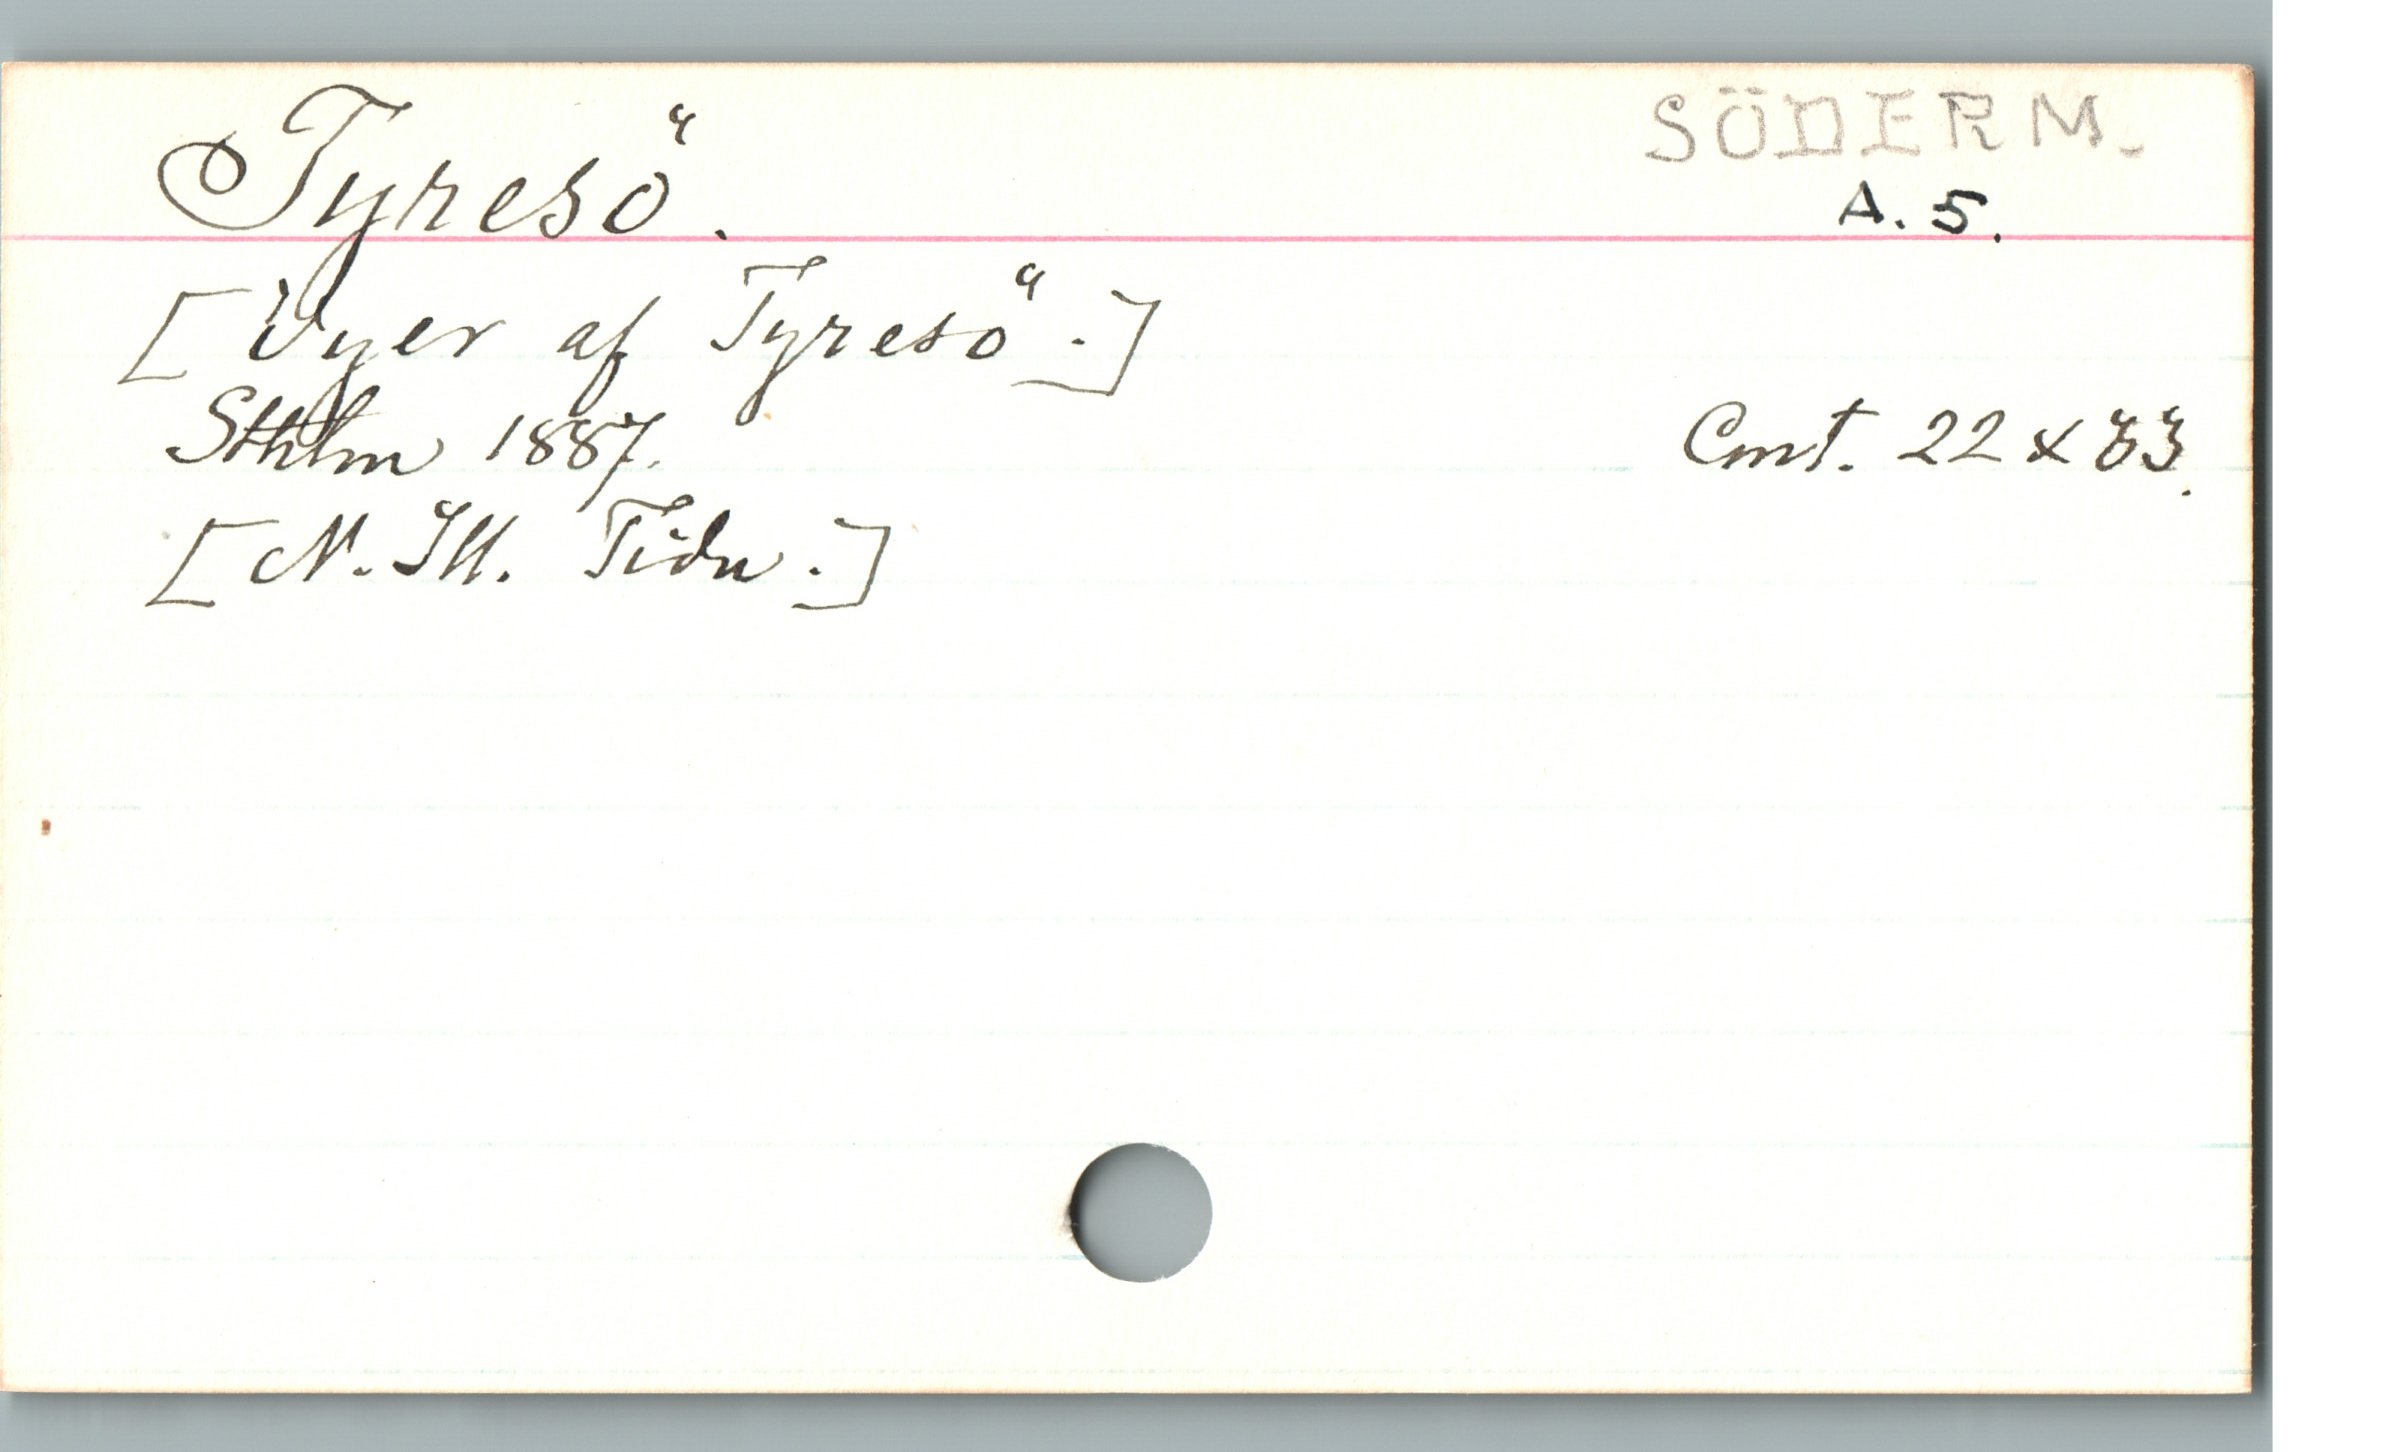 Tyresö.
SÖDERM.
A. 5.
[Vyer af Tyresö.]
Sthlm 1887.
Cmt. 22 x 33.
[N. Ill. Tidn.]